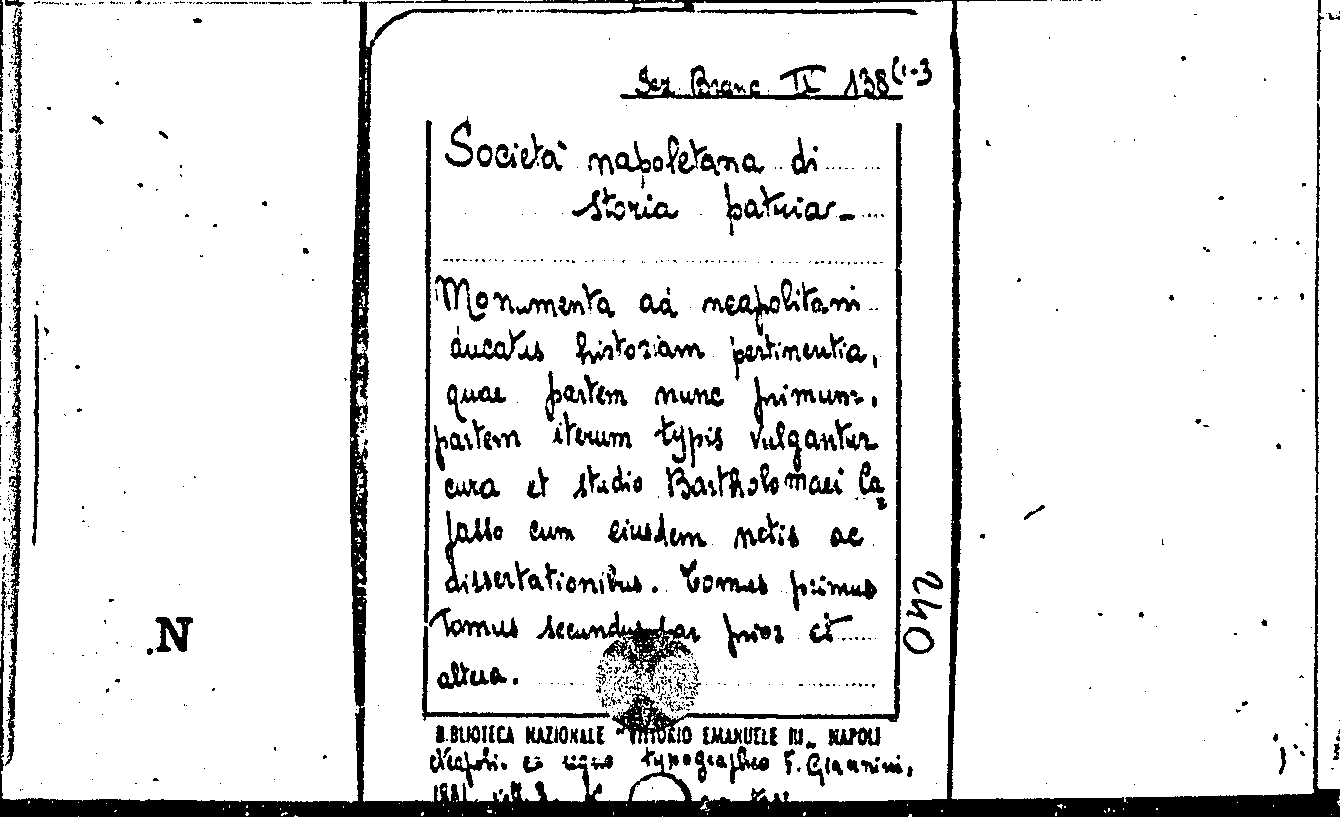 Sez. Branc II 138(1-3
Società napoletana di
storia patria-
Monumenta ad neapolitani
ducatus historiam pertinentia,
quae partem nunc primum,
partem iterum typis vulgantur
cura et studio Bartholomaei Ca=
passo cum eiusdem notis ac
dissertationibus. Tomus primus
Tomus secundus par prior et
altera.
BIBLIOTECA NAZIONALE "VITTORIO EMANUELE III" NAPOLI
Neapoli. ex regio typographeo F. Giannini,
1881
042
N.